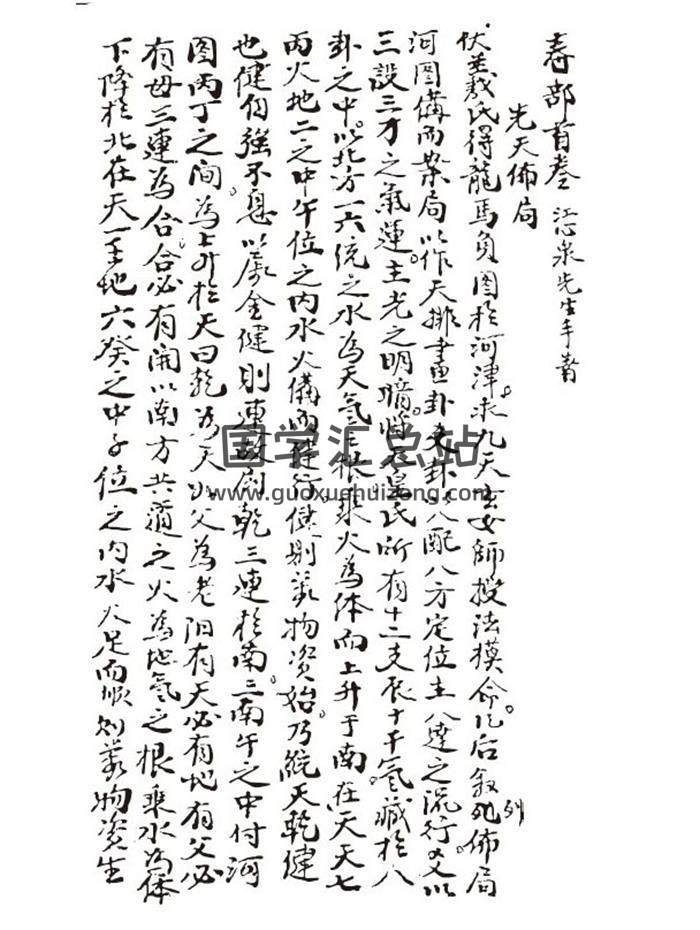 春部首卷 江心泉先生手著
先天佈局
伏羲氏得龍馬負图於河津。求九天玄女師授法模命。凡后叙列佈局
河图備而案局以作天排畫卦爻卦以八配八方定位主八達之流行。又以
三設三才之氣運。主光之明暗。惟石皇氏所有十二支辰十干氣藏於八
卦之中。以北方一六統之水為天氣之根。乘火為体而上升于南在天天七
丙火地二之中午位之内水火備而健行。健則萬物資始。乃統天乾健
也健自強不息。以象金健則連故曰乾三連於南。三南午之中付河
图丙丁之间為上升於天曰乾為天為父為老阳有天必有地有父必
有母三連為合。合必有開以南方共道之火為地氣之根乘水為体
下降於北在天一壬地六癸之中子位之内水火足而順則萬物资生
国学汇总站
www.guoxuehuizong.com